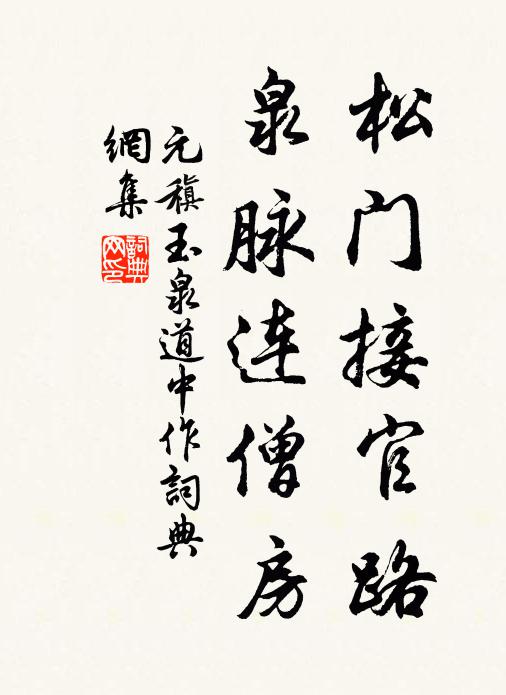 松门接官路
泉脉连僧房
元稹玉泉道中作詞典
網集
詞典
网印